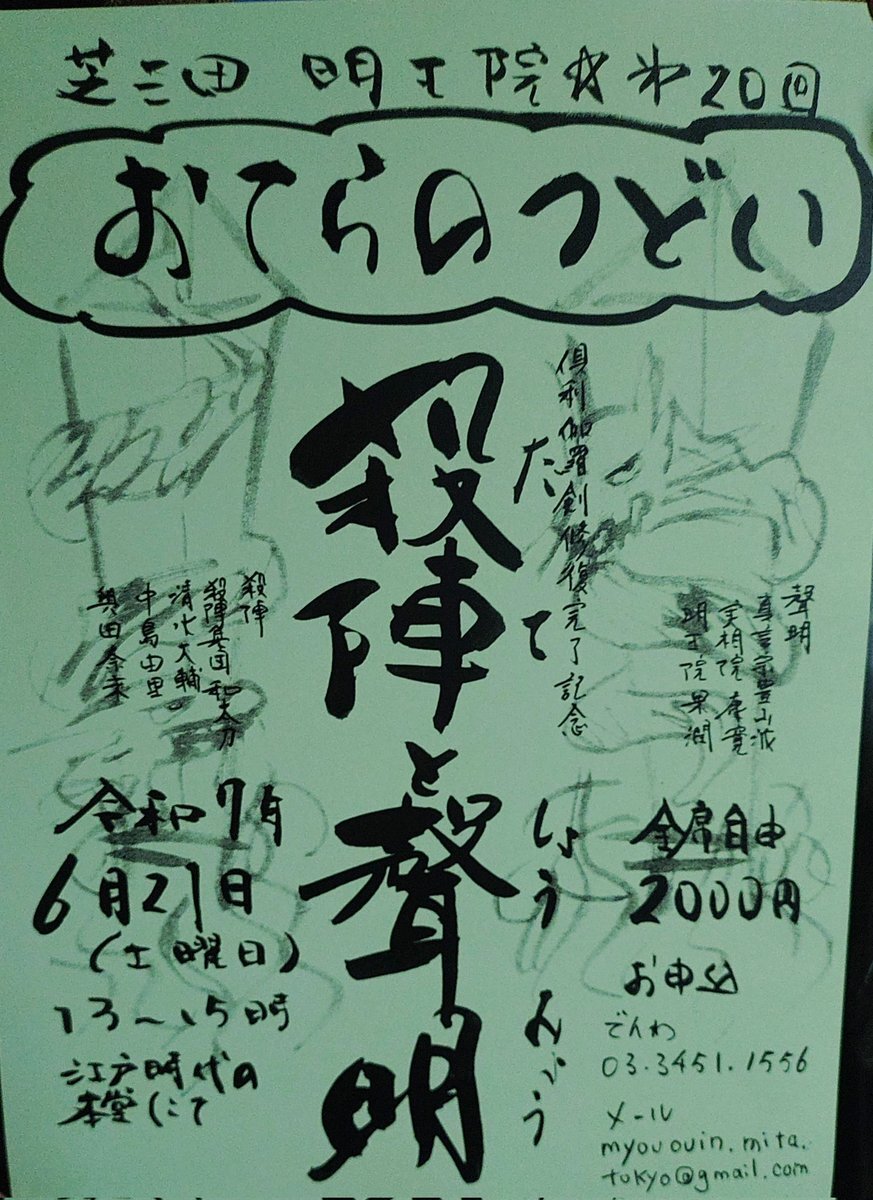 芝三田 明王院 第20回
おてらのつどい
倶利伽羅剣修復完了記念
殺陣と聲明
たて
しょうみょう
聲明
真言宗豊山派
実相院 康寛
明王院 果潤
殺陣
殺陣兵団 和太刀
清水大輔
中島由里
奥田奈来
全席自由
2000円
お申込
でんわ
03.3451.1556
メール
myououin.mita.
tokyo@gmail.com
令和7年
6月21日
(土曜日)
13〜15時
江戸時代の
本堂にて